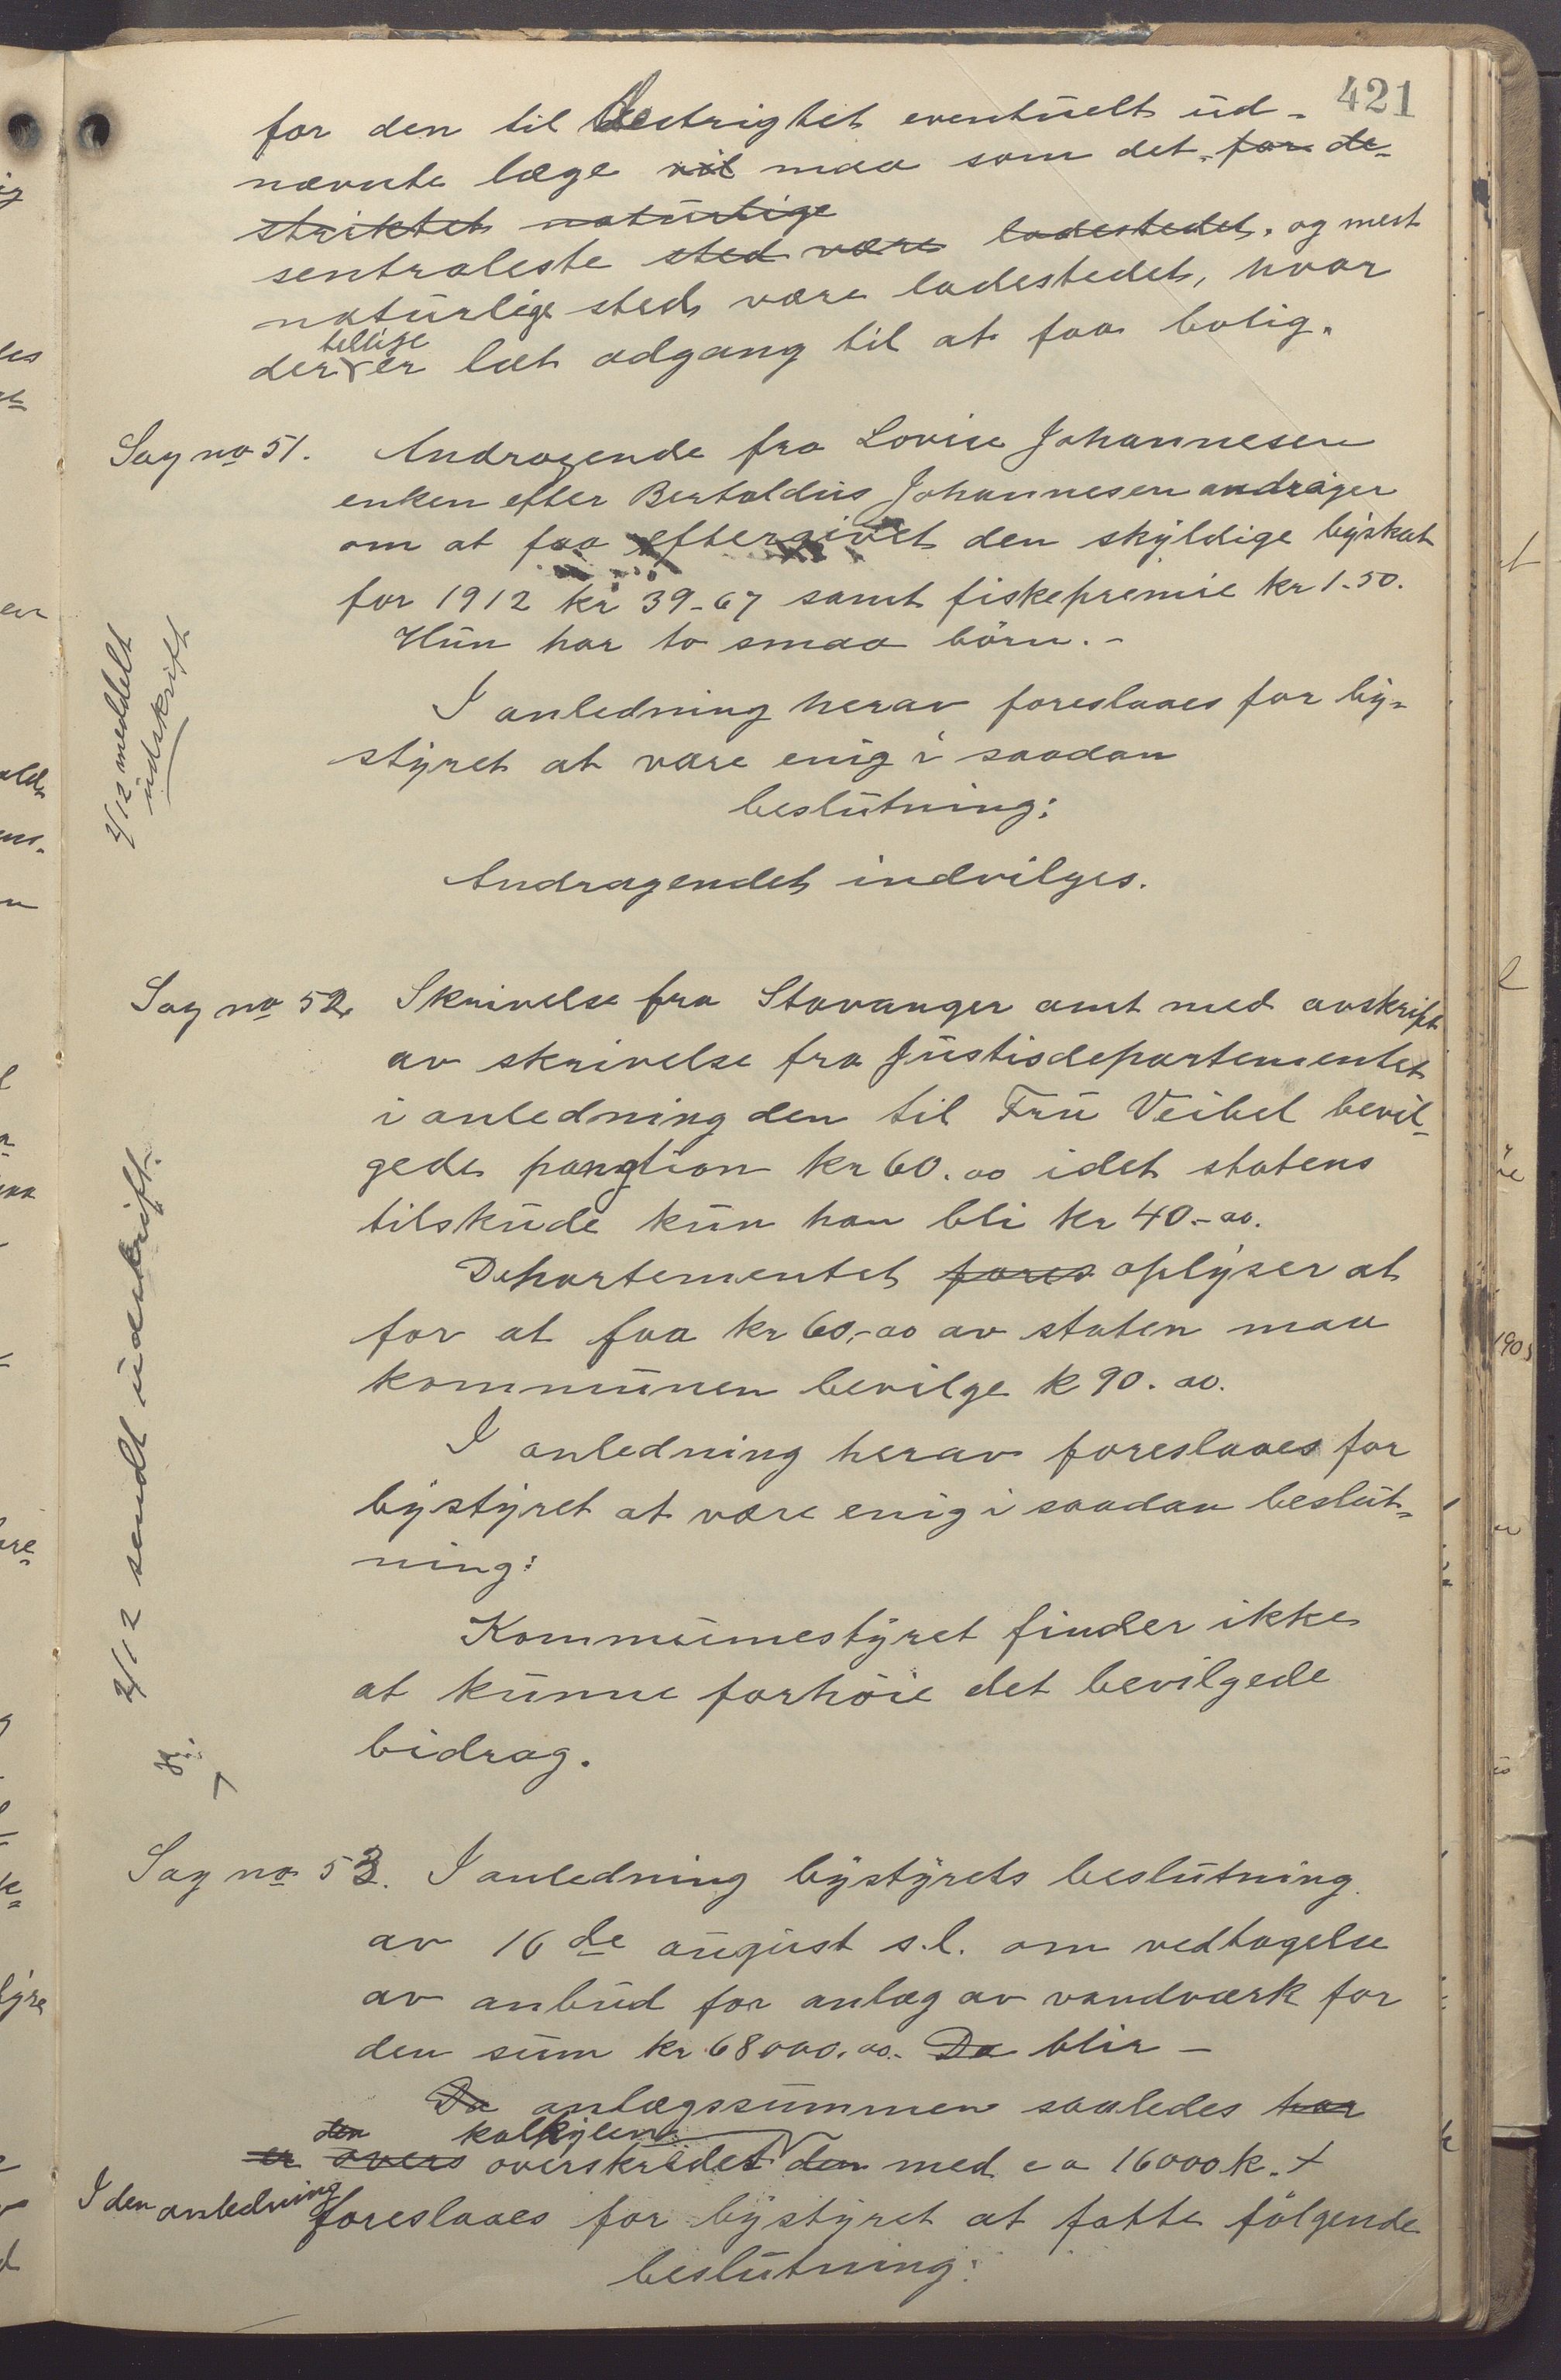 421
for den til destrigtet eventuelt ud-
nævnte læge vil maa som det for de-
striktet naturlige
sentraleste sted være ladestedet, og mest
naturlige sted være ladestedet, hvor
tillige
der er læt adgang til at faa bolig.
Sag no 51. Andragende fra Lovise Johannesen
enken efter Bertoldus Johannesen andrager
om at faa eftergivet den skyldige byskat
for 1912 kr 39-67 samt fiskepremie kr 1-50.
Hun har to smaa börn.-
2/12 meddelt
udskrift
I anledning herav foreslaaes for by-
styret at være enig i saadan
beslutning:
Andragendet indvilges.
Sag no 52. Skrivelse fra Stavanger amt med avskrift
av skrivelse fra Justisdepartementet
i anledning den til Fru Veibel bevil-
gede pangtion kr 60.00 idet statens
tilskude kun han bli kr 40.-00.
Departementet fores oplyser at
for at faa kr 60,-00 av staten maa
kommunen bevilge k 90.00.
2/12 sendt udskrift.
I anledning herav foreslaaes for
bystyret at være enig i saadan beslut-
ning:
Kommunestyret finder ikke
at kunne forhöie det bevilgede
bidrag.
Sag no 53. I anledning bystyrets beslutning
av 16de august s.l. om vedtagelse
av anbud for anlæg av vandværk for
den sum kr 68000.00. Da blir -
Da anlægssummen saaledes har
den kalkylen
er overs overskridet den med ca 16000 k. +
I den anledning foreslaaes for bystyret at fatte fölgende
beslutning: